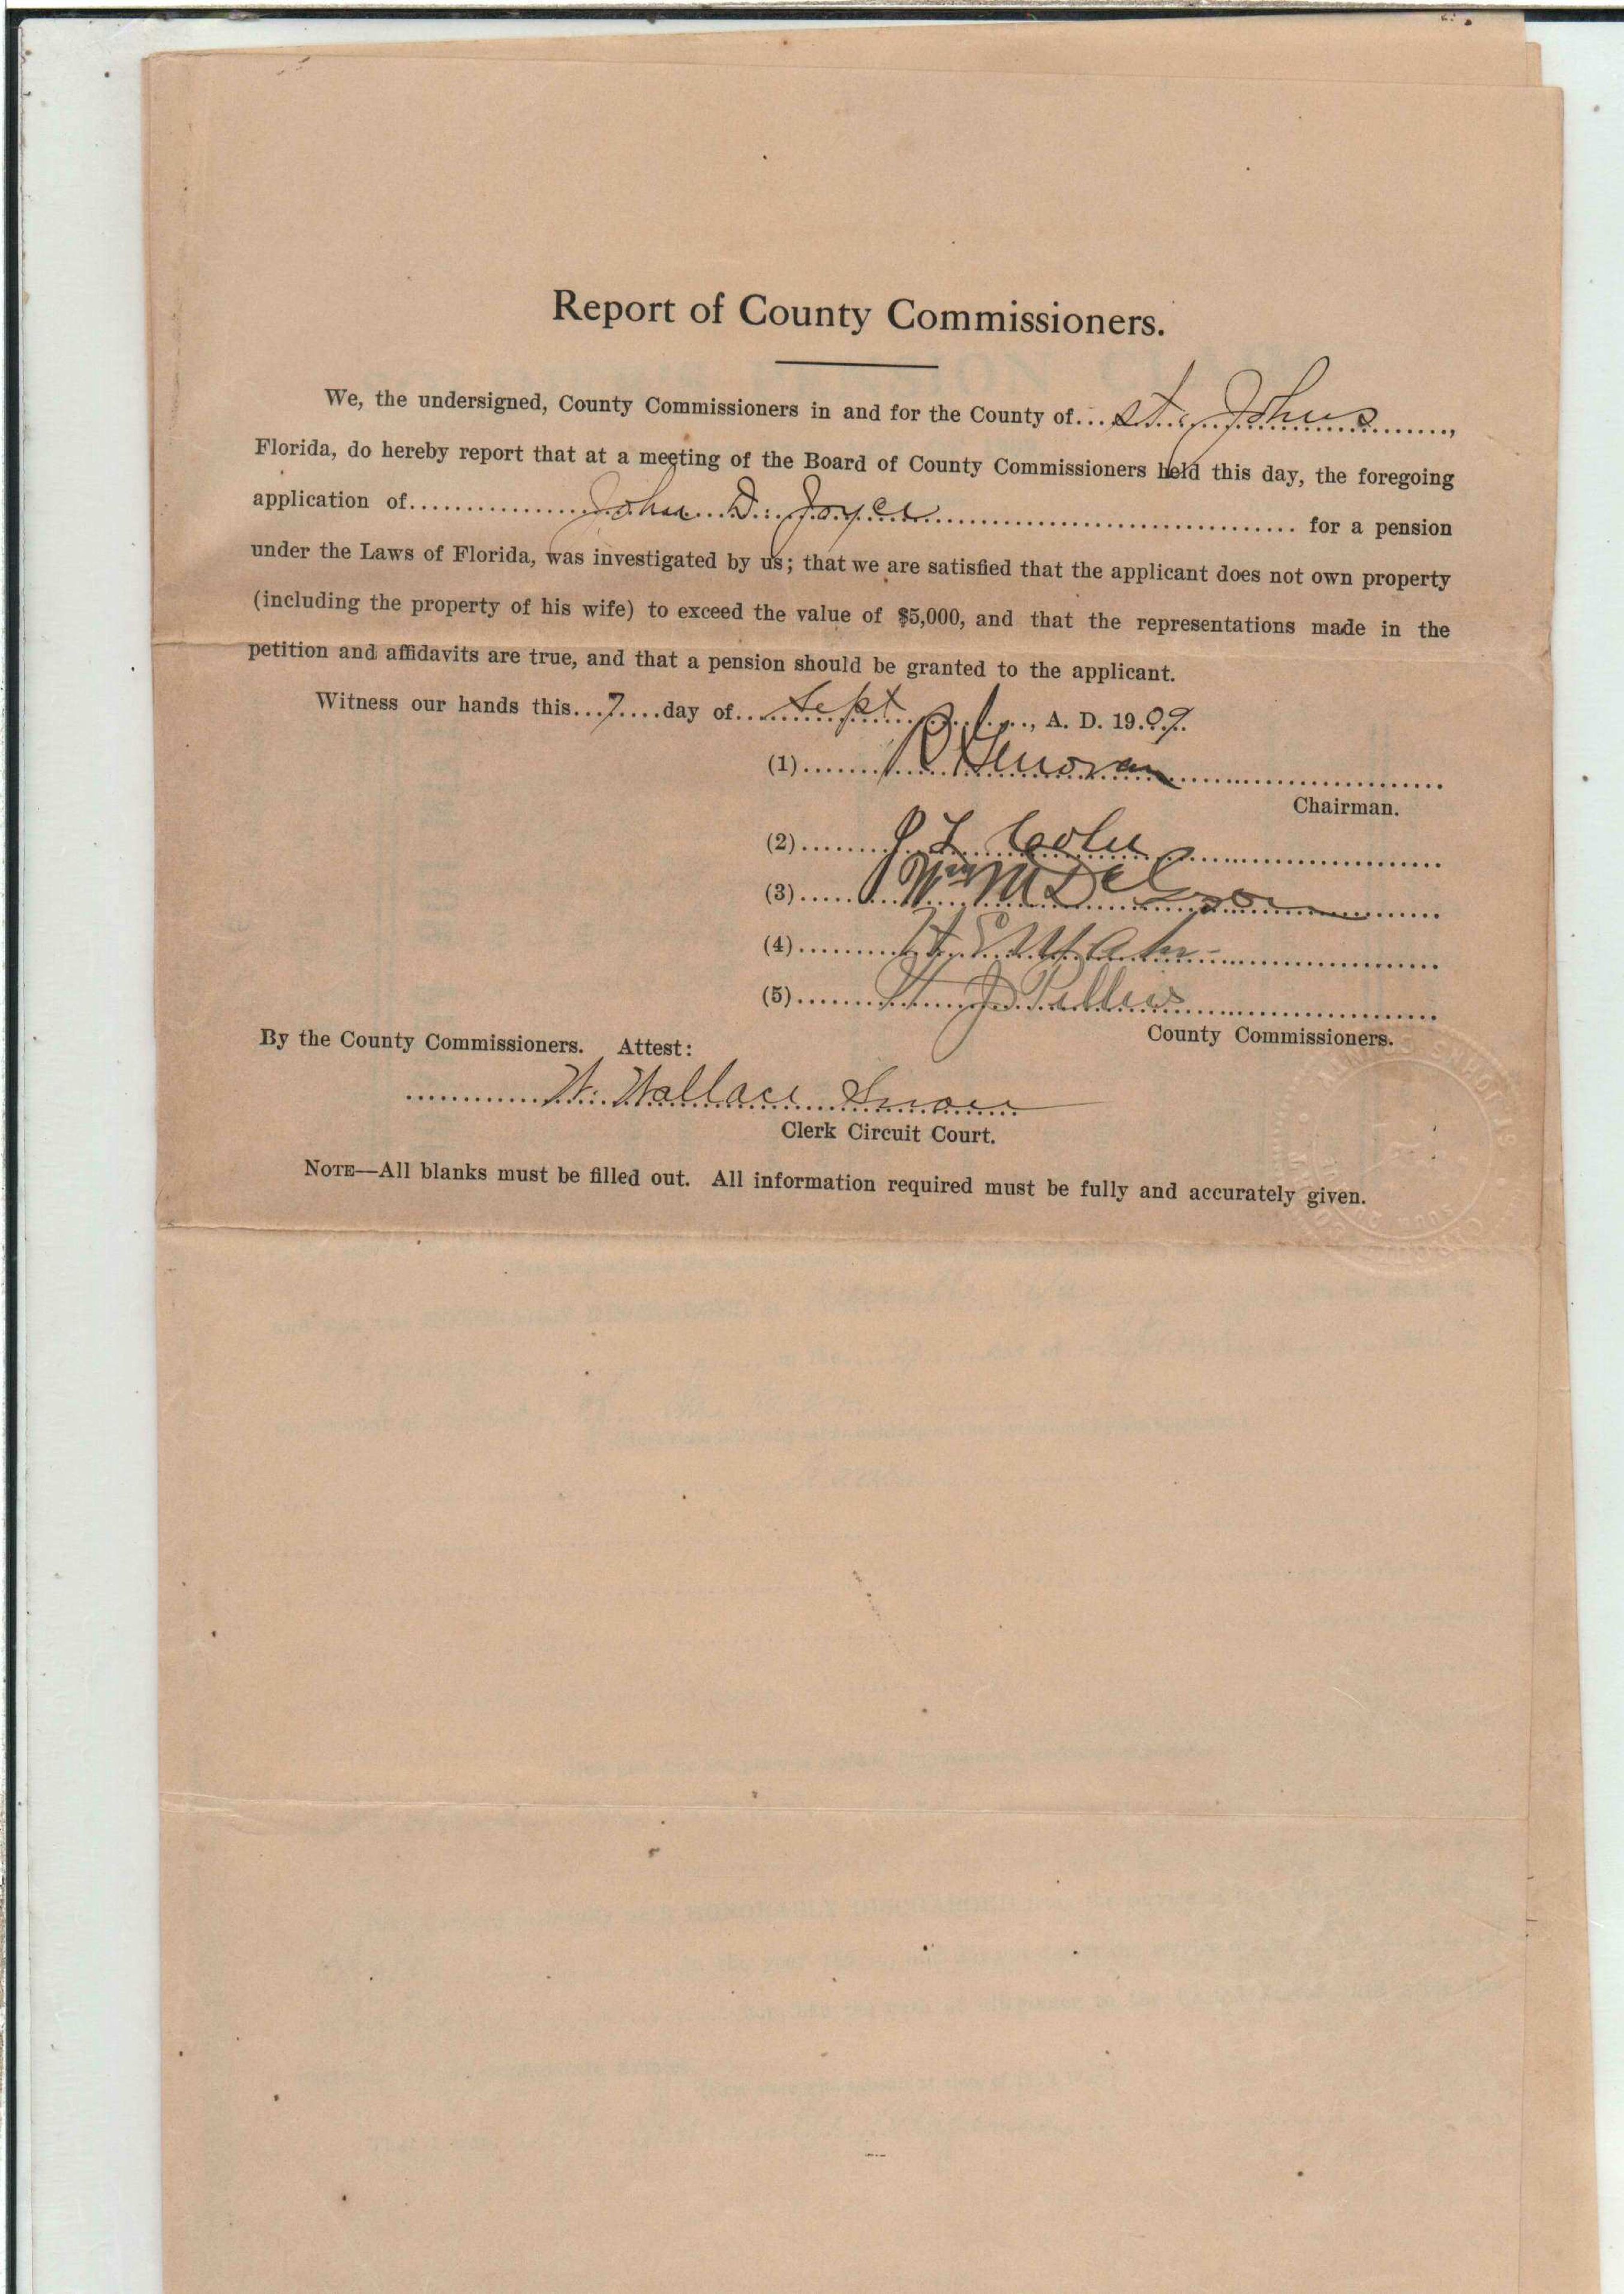 Report of County Commissioners.
We, the undersigned, County Commissioners in and for the County of... St. Johns ...,
Florida, do hereby report that at a meeting of the Board of County Commissioners held this day, the foregoing
application of... John D. Joyce ... for a pension
under the Laws of Florida, was investigated by us; that we are satisfied that the applicant does not own property
(including the property of his wife) to exceed the value of $5,000, and that the representations made in the
petition and affidavits are true, and that a pension should be granted to the applicant.
Witness our hands this...7...day of... Sept ..., A. D. 19.09.
(1)
Chairman.
(2)
(3) Wm
(4)
(5)
County Commissioners.
By the County Commissioners. Attest:
W. Wallace Snow
Clerk Circuit Court.
NOTE—All blanks must be filled out. All information required must be fully and accurately given.